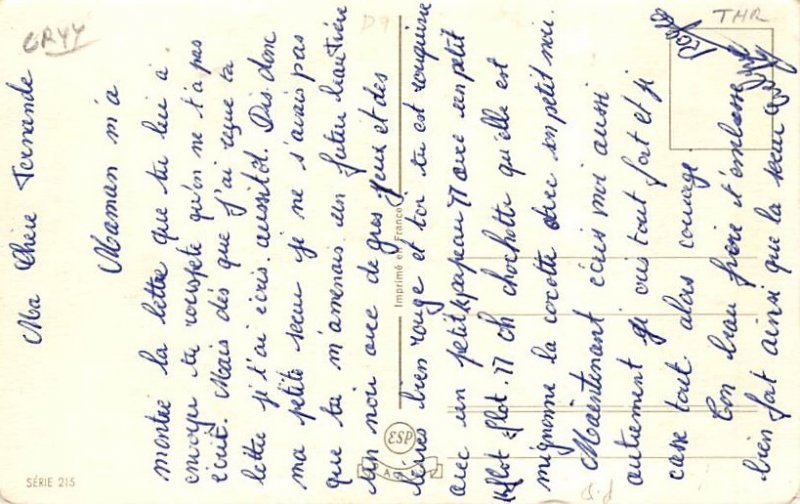 Ma Chère Fernande
Maman m'a
montré la lettre que tu lui a
envoyé tu rouspète qu'on ne t'a pas
écrit. Mais dès que j'ai reçue ta
lettre je t'ai écris aussitôt. Dis donc
ma petite sœur je ne s'avais pas
que tu m'amenais un futur beau frère
un noir avec de gros yeux et des
lèvres bien rouge et toi tu est rouquine
avec un petit chapeau !! avec un petit
flot flot. !! oh chochotte qu'elle est
mignonne la cocotte avec son petit noir.
Maintenant écris moi aussi
autrement je cris tout fort et je
casse tout alors courage.
Ton beau frère t'embrasse
bien fort ainsi que ta sœur
Imprimé en France
ESP
SÉRIE 215
THR
D9